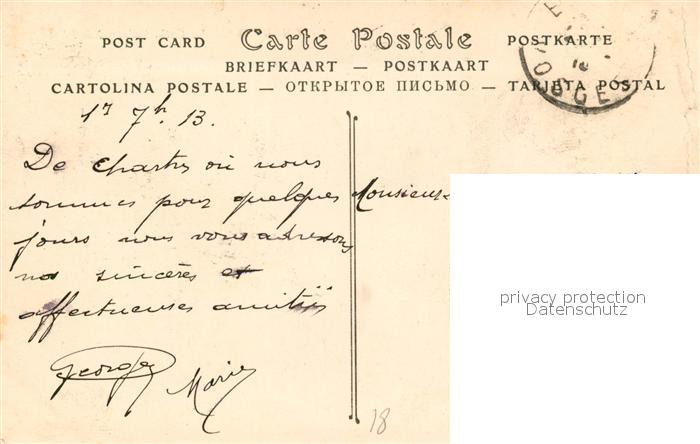 POST CARD Carte Postale POSTKARTE
BRIEFKAART — POSTKAART
CARTOLINA POSTALE — ОТКРЫТОЕ ПИСЬМО — TARJETA POSTAL
17 7h 13.
De Chartres où nous
sommes pour quelques
jours nous vous adressons
nos sincères et
affectueuses amitiés
Georges
Marie
Monsieur
privacy protection
Datenschutz
18